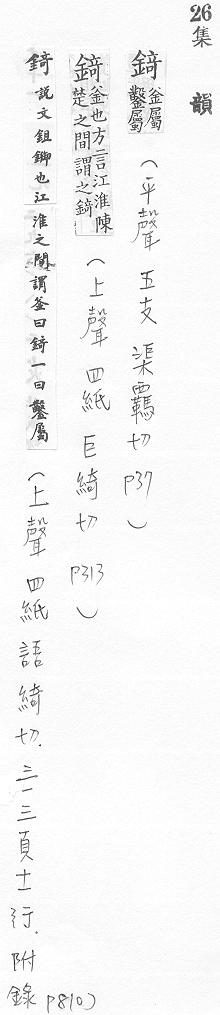 26 集韻
錡 釜屬 鑿屬 (平聲 五支 渠羈切 p37)
錡 釜也方言江淮陳楚之間謂之錡 (上聲 四紙 巨綺切 p313)
錡 說文鉏鋤也江淮之間謂釜曰錡一曰鑿屬 (上聲 四紙 語綺切. 三一三頁十一行. 附錄 p810)